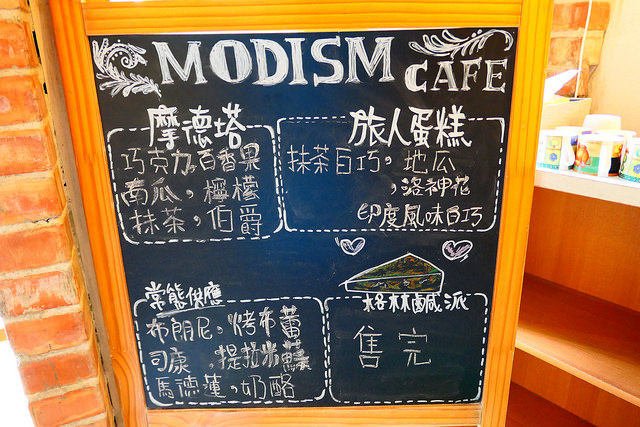 MODISM CAFE
摩德塔
巧克力,百香果
南瓜,檸檬
抹茶,伯爵
旅人蛋糕
抹茶白巧。地瓜
,洛神花
印度風味白巧
常態供應
布朗尼。烤布蕾
司康,提拉米蘇
馬德蓮,奶酪
格林鹹派
售完